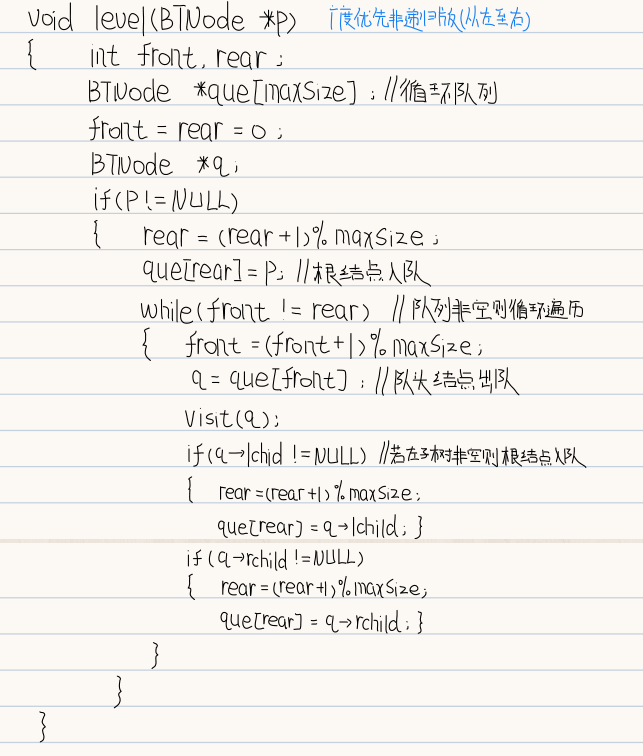 void level(BTNode *p) 广度优先非递归版(从左至右)
{ int front, rear ;
BTNode *que[maxSize] ; //循环队列
front = rear = 0 ;
BTNode *q ;
if(P != NULL)
{ rear = (rear+1)% maxSize ;
que[rear] = P; //根结点入队
while(front != rear) //队列非空则循环遍历
{ front = (front+1)% maxSize ;
q = que[front] ; //队头结点出队
Visit(q) ;
if(q→lchid != NULL) //若左子树非空则根结点入队
{ rear = (rear+1)% maxSize ;
que[rear] = q→lchild ; }
if(q→rchild != NULL)
{ rear = (rear+1)% maxSize ;
que[rear] = q→rchild ; }
}
}
}